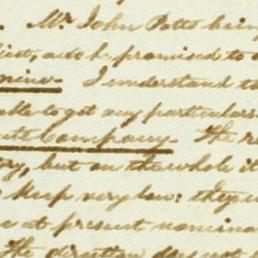 . Mr John Potts being
, as he promised to
mine. I understand to
able to get any particulars
Company. The re
ory, but on the whole it
keep very low: they
e at present nomina
The direction does not